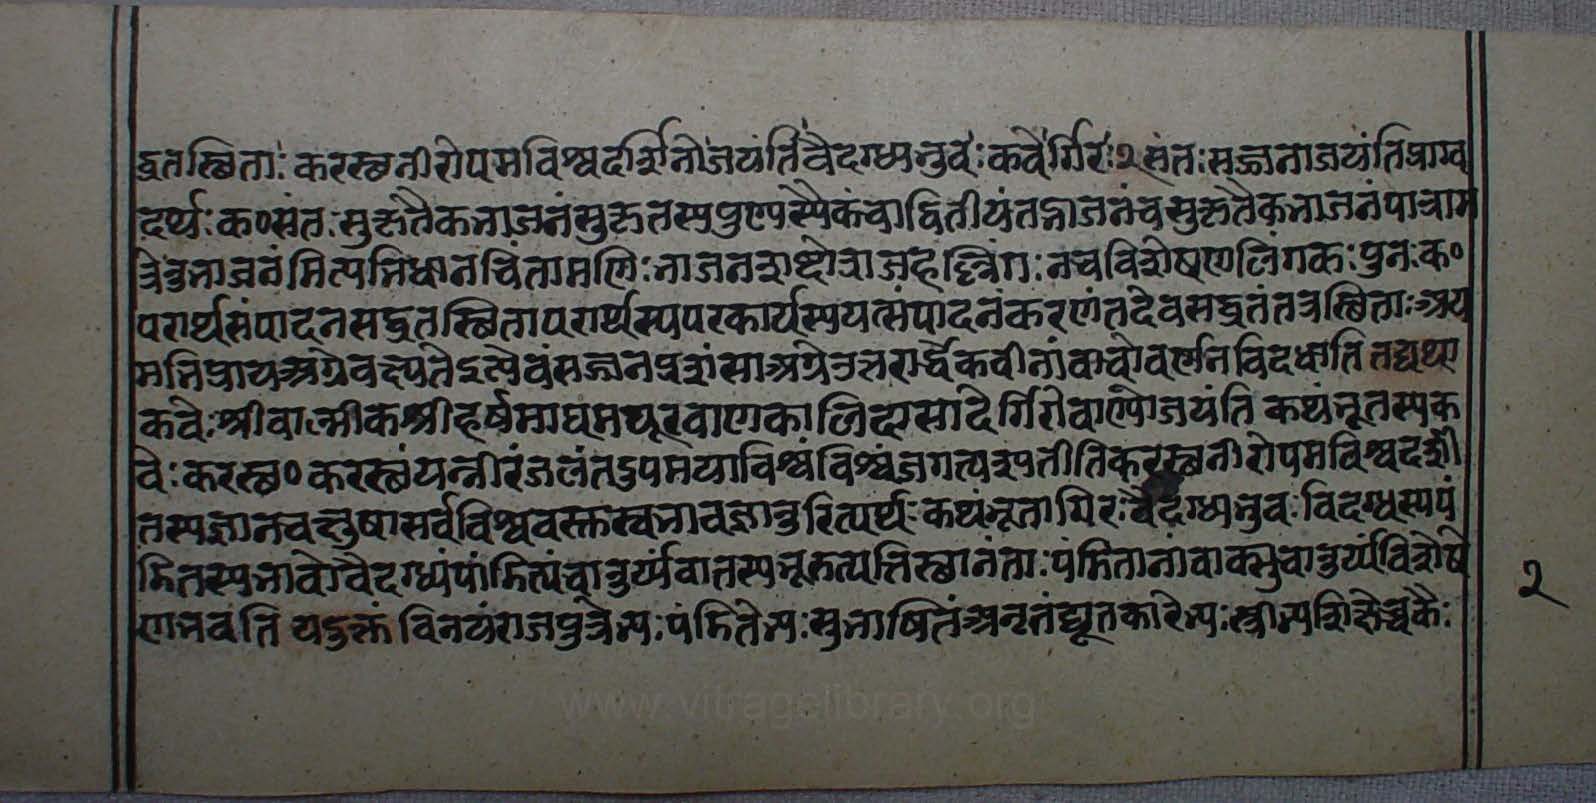 द्व्रतस्थिताः करस्थनीरोपमविश्वदर्शिनो जयंति वैदग्ध्यभुवः कवेर्गिरः २ संतः सज्जना जयंति प्राग्व
दर्थः क॰ संतः सुकृतैकभाजनं सुकृतस्य पुण्यस्यैकं चाद्वितीयं तद्भाजनं च सुकृतैकभाजनं पात्राम
त्रे तु भाजनं मित्यभिधानचिंतामणिः भाजनशब्दोराजहल्लिंगः नच विशेषणलिंगकः पुनः क॰
परार्थसंपादनसद्व्रतस्थिता परार्थस्य परकार्यस्य यत्संपादनं करणं तदेव सद्व्रतं तत्र स्थिताः अय
मभिप्राय अग्रे वक्ष्यते इत्येवं सज्जनप्रशंसा अग्रे उत्तरार्द्धे कवीनां वाचो वर्णन विदधाति तद्यथा
कवेः श्रीवाल्मीक श्रीहर्ष माघ मयूर बाण कालिदासादेर्गिरो वाण्यो जयंति कथंभूतस्य क
वेः करस्थ॰ करस्थं यन्नीरं जलं तदुपमया विश्वं विश्वं जगत्पश्यतीति करस्थनीरोपमविश्वदर्शी
तस्य ज्ञानचक्षुषा सर्वविश्ववस्तुस्वभावज्ञातुरित्यर्थः कथंभूता गिरः वैदग्ध्यभुवः विदग्धस्य पं
डितस्य भावो वैदग्ध्यं पांडित्यं चातुर्य्यं वा तस्य भूरुत्पत्तिस्थानं ताः पंडितानां वाक्सु चातुर्यं विशेषे
ण भवति यदुक्तं विनयं राजपुत्रेभ्यः पंडितेभ्यः सुभाषितं अनृतं द्यूतकारेभ्यः स्त्रीभ्य शिक्षेच्च कैः
२
www.vitragelibrary.org